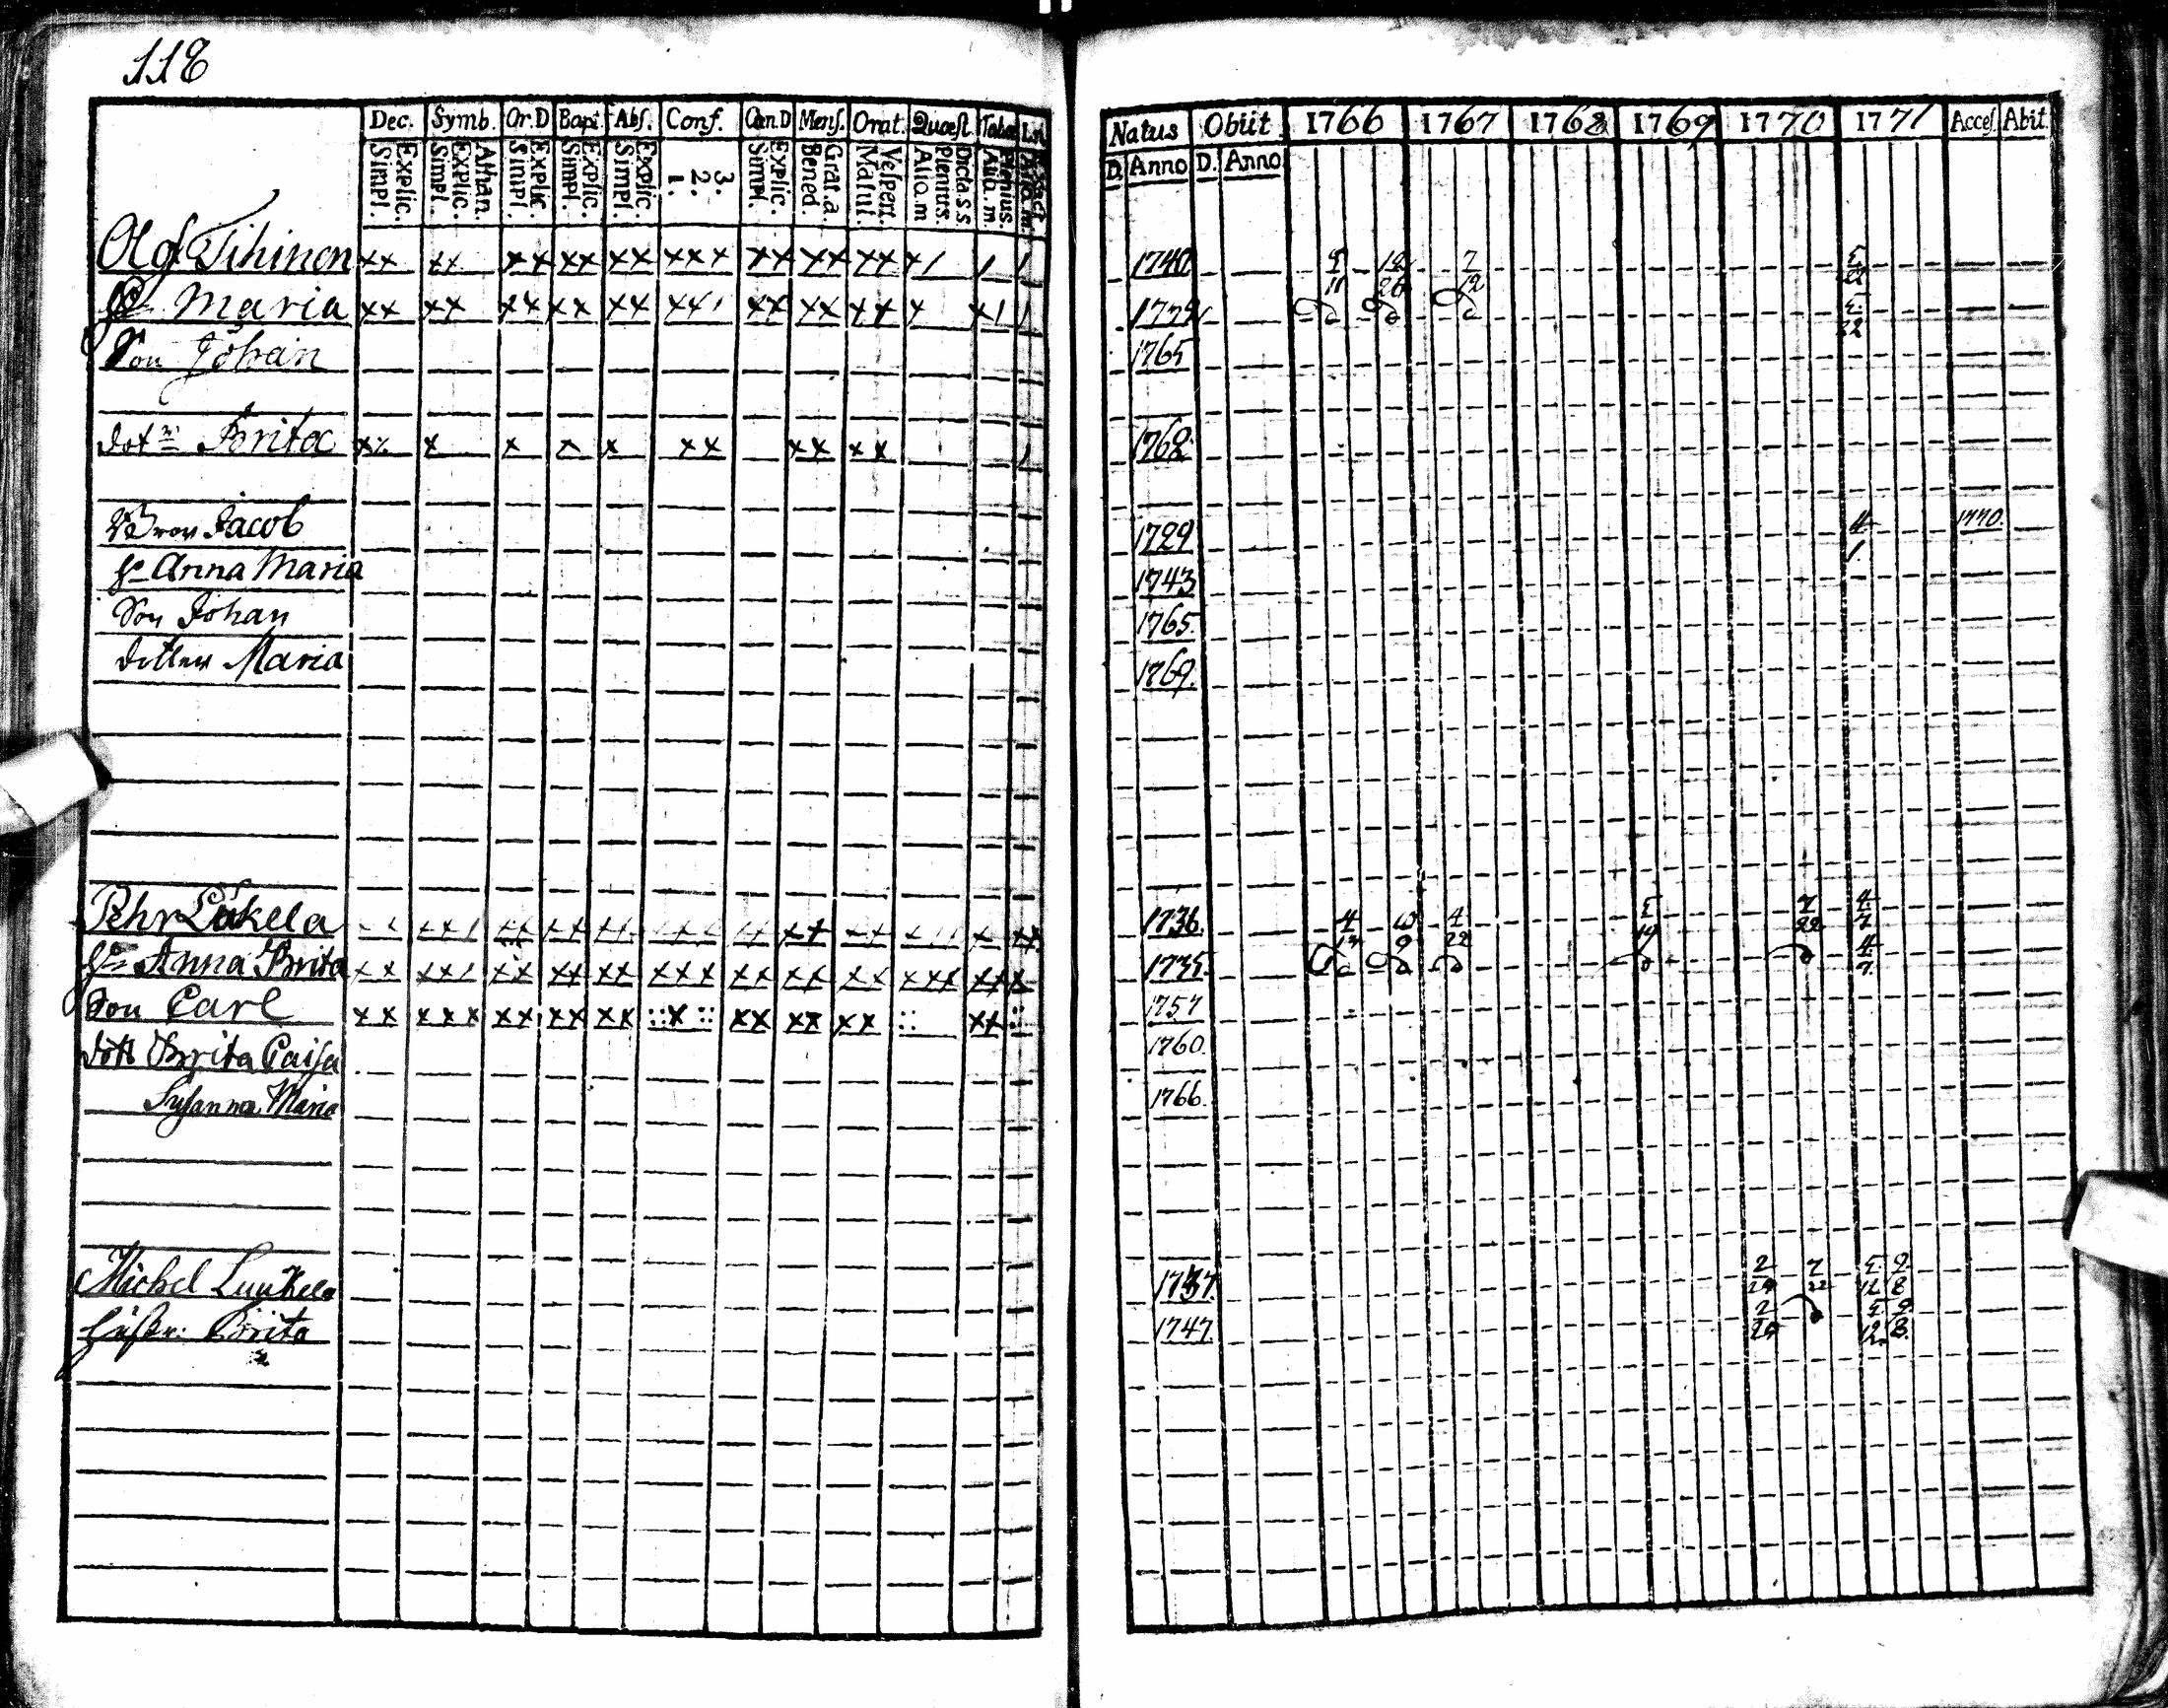 118
Dec. Symb. Or.D Bapt. Abs. Conf. Cœn.D Mens. Orat. Quæst.
Natus Obiit 1766 1767 1768 1769 1770 1771 Acces. Abit.
Explic. Simpl. Athan. Explic. Simpl. Explic. Simpl. Explic. Simpl. Explic. Simpl. 3. 2. 1. Explic. Simpl. Grat. a. Bened. Vespert. Matut. Dicta. s s. Plenius. Aliq. m Plenius. Aliq. m.
D. Anno D. Anno
Olof Tihinen xx xx xx xx xx xxx xx xx xx x/ / / 1740 12 7 5
11 26 12 22
Maria xx xx xx xx xx xx/ xx xx xx x x/ / 5
22
Son Johan 1765
dot Brita x x x x xx xx xx / 1768
Jacob 1729 4 1770.
1
Anna Maria 1743
Son Johan 1765.
dotter Maria 1769.
Pehr Lukela 1736. 4 10 4 5 7 4
9 22 19 22 7
Anna Brita xx xx/ xx xx xx xxx xx xx xx xxx xxx 1735. 4
7
Son Carl xx xxx xx xx xx ::x:: xx xx xx :: xx :: 1757
dott Brita Caisa 1760.
Susanna Maria 1766.
Michel Luukela 1737. 2 7 5 9
24 22 12 8
Brita 1747. 2 5 9
24 12 8